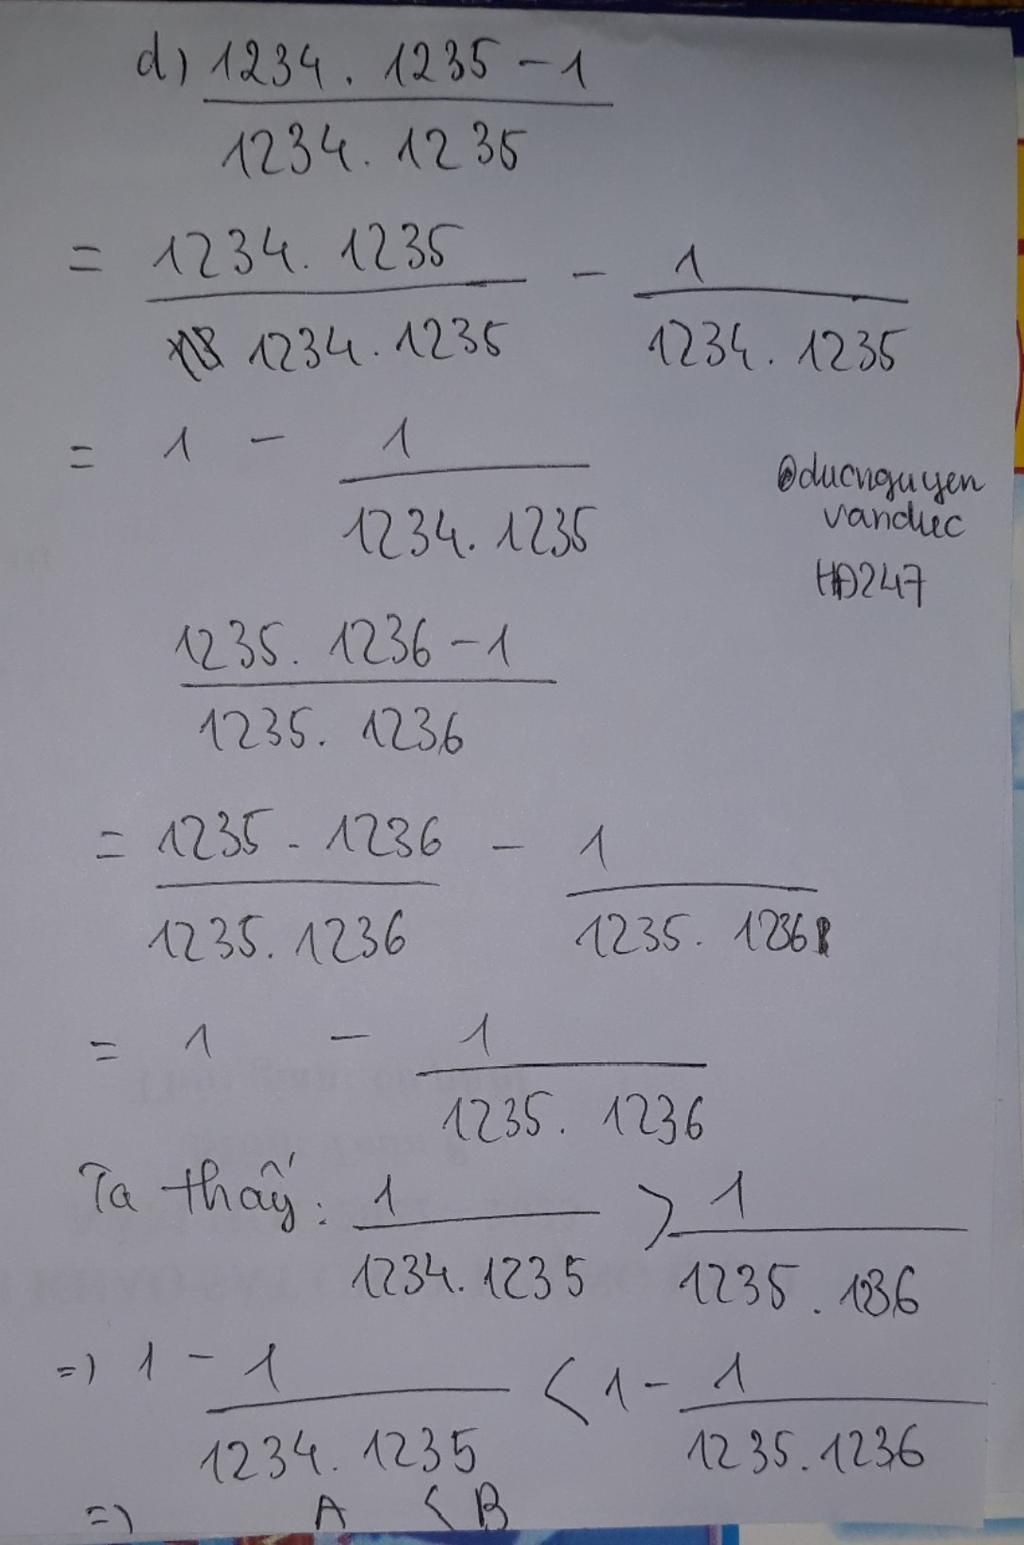 d) 1234 . 1235 - 1
1234 . 1235
= 1234 . 1235 - 1
1234 . 1235 1234 . 1235
= 1 - 1
1234 . 1235
@ducnguyen
vanduc
HĐ247
1235 . 1236 - 1
1235 . 1236
= 1235 . 1236 - 1
1235 . 1236 1235 . 1236
= 1 - 1
1235 . 1236
Ta thấy : 1 > 1
1234 . 1235 1235 . 1236
=) 1 - 1 < 1 - 1
1234 . 1235 1235 . 1236
=) A < B